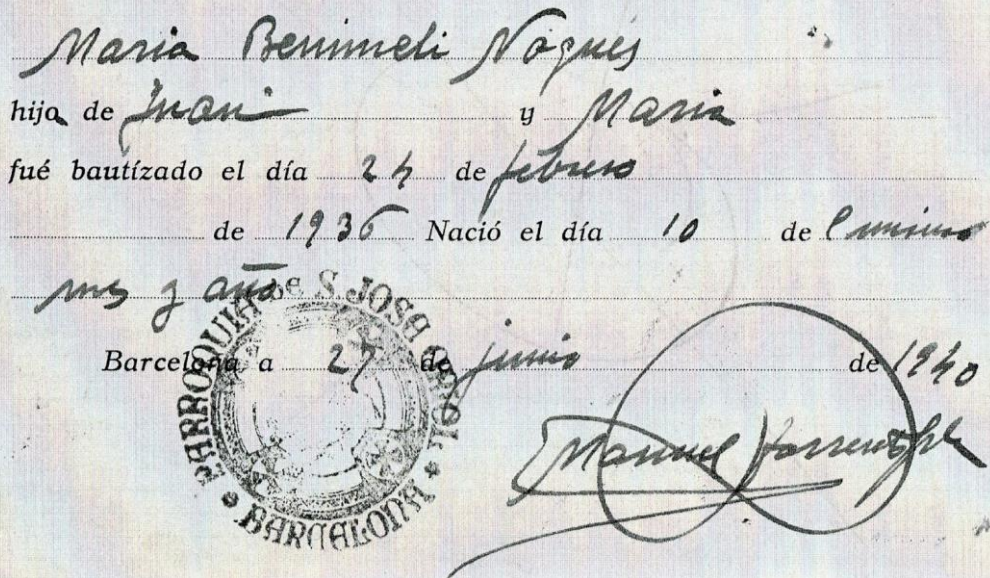 Maria Benimeli Nogués
hija de Juan y Maria
fué bautizado el día 24 de febrero
de 1936 Nació el día 10 de
mes y año
Barcelona a 27 de junio de 1940
PARROQUIA DE S. JOSE
BARCELONA
Manuel